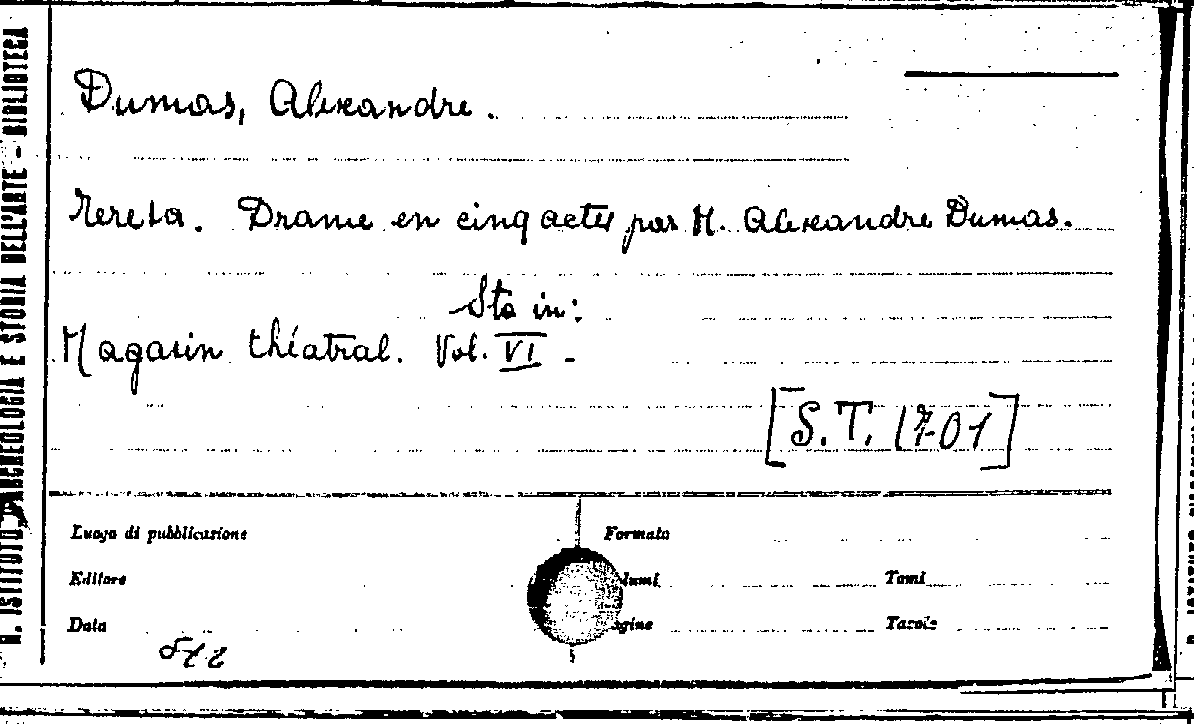 R. ISTITUTO D'ARCHEOLOGIA E STORIA DELL'ARTE - BIBLIOTECA
Dumas, Alexandre.
Teresa. Drame en cinq actes par M. Alexandre Dumas.
Sta in:
Magasin théatral. Vol. VI -
[S.T. 1701]
Luogo di pubblicazione
Formato
Editore
lumi
Tomi
Data
gine
Tavole